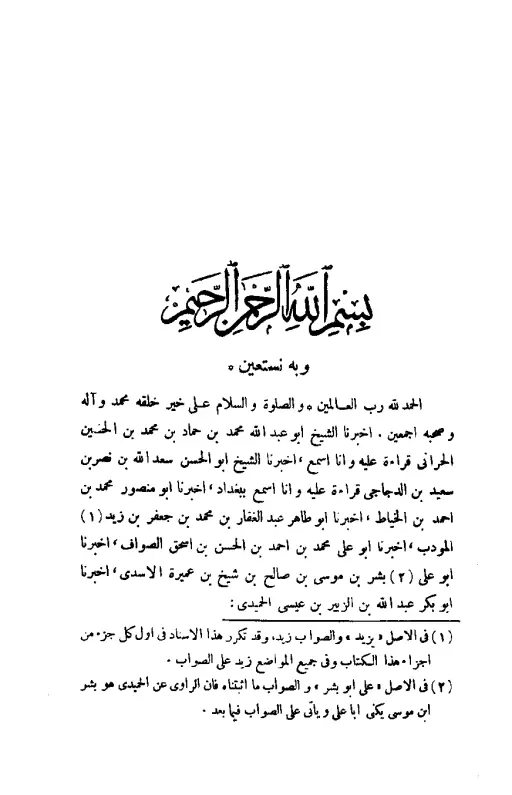 بِسْمِ اللهِ الرَّحْمٰنِ الرَّحِيْمِ
وبه نستعين *
الحمد لله رب العالمين * والصلوة والسلام على خير خلقه محمد وآله
وصحبه اجمعين . اخبرنا الشيخ ابو عبد الله محمد بن حماد بن محمد بن الحنين
الحرانى قراءة عليه وانا اسمع ، اخبرنا الشيخ ابو الحسن سعد الله بن نصر بن
سعيد بن الدجاجى قراءة عليه وانا اسمع ببغداد ، اخبرنا ابو منصور محمد بن
احمد بن الخياط ، اخبرنا ابو طاهر عبد الغفار بن محمد بن جعفر بن زيد (١)
المودب ، اخبرنا ابو على محمد بن احمد بن الحسن بن اسحق الصواف ، اخبرنا
ابو على (٢) بشر بن موسى بن صالح بن شيخ بن عميرة الاسدى ، اخبرنا
ابو بكر عبد الله بن الزبير بن عيسى الحميدى :
(١) فى الاصل « يزيد » والصواب زيد، وقد تكرر هذا الاسناد فى اول كل جزء من
اجزاء هذا الكتاب وفى جميع المواضع زيد على الصواب .
(٢) فى الاصل « على ابو بشر » و الصواب ما اثبتناه فان الراوى عن الحميدى هو بشر
ابن موسى يكنى ابا على و يأتى على الصواب فيما بعد .